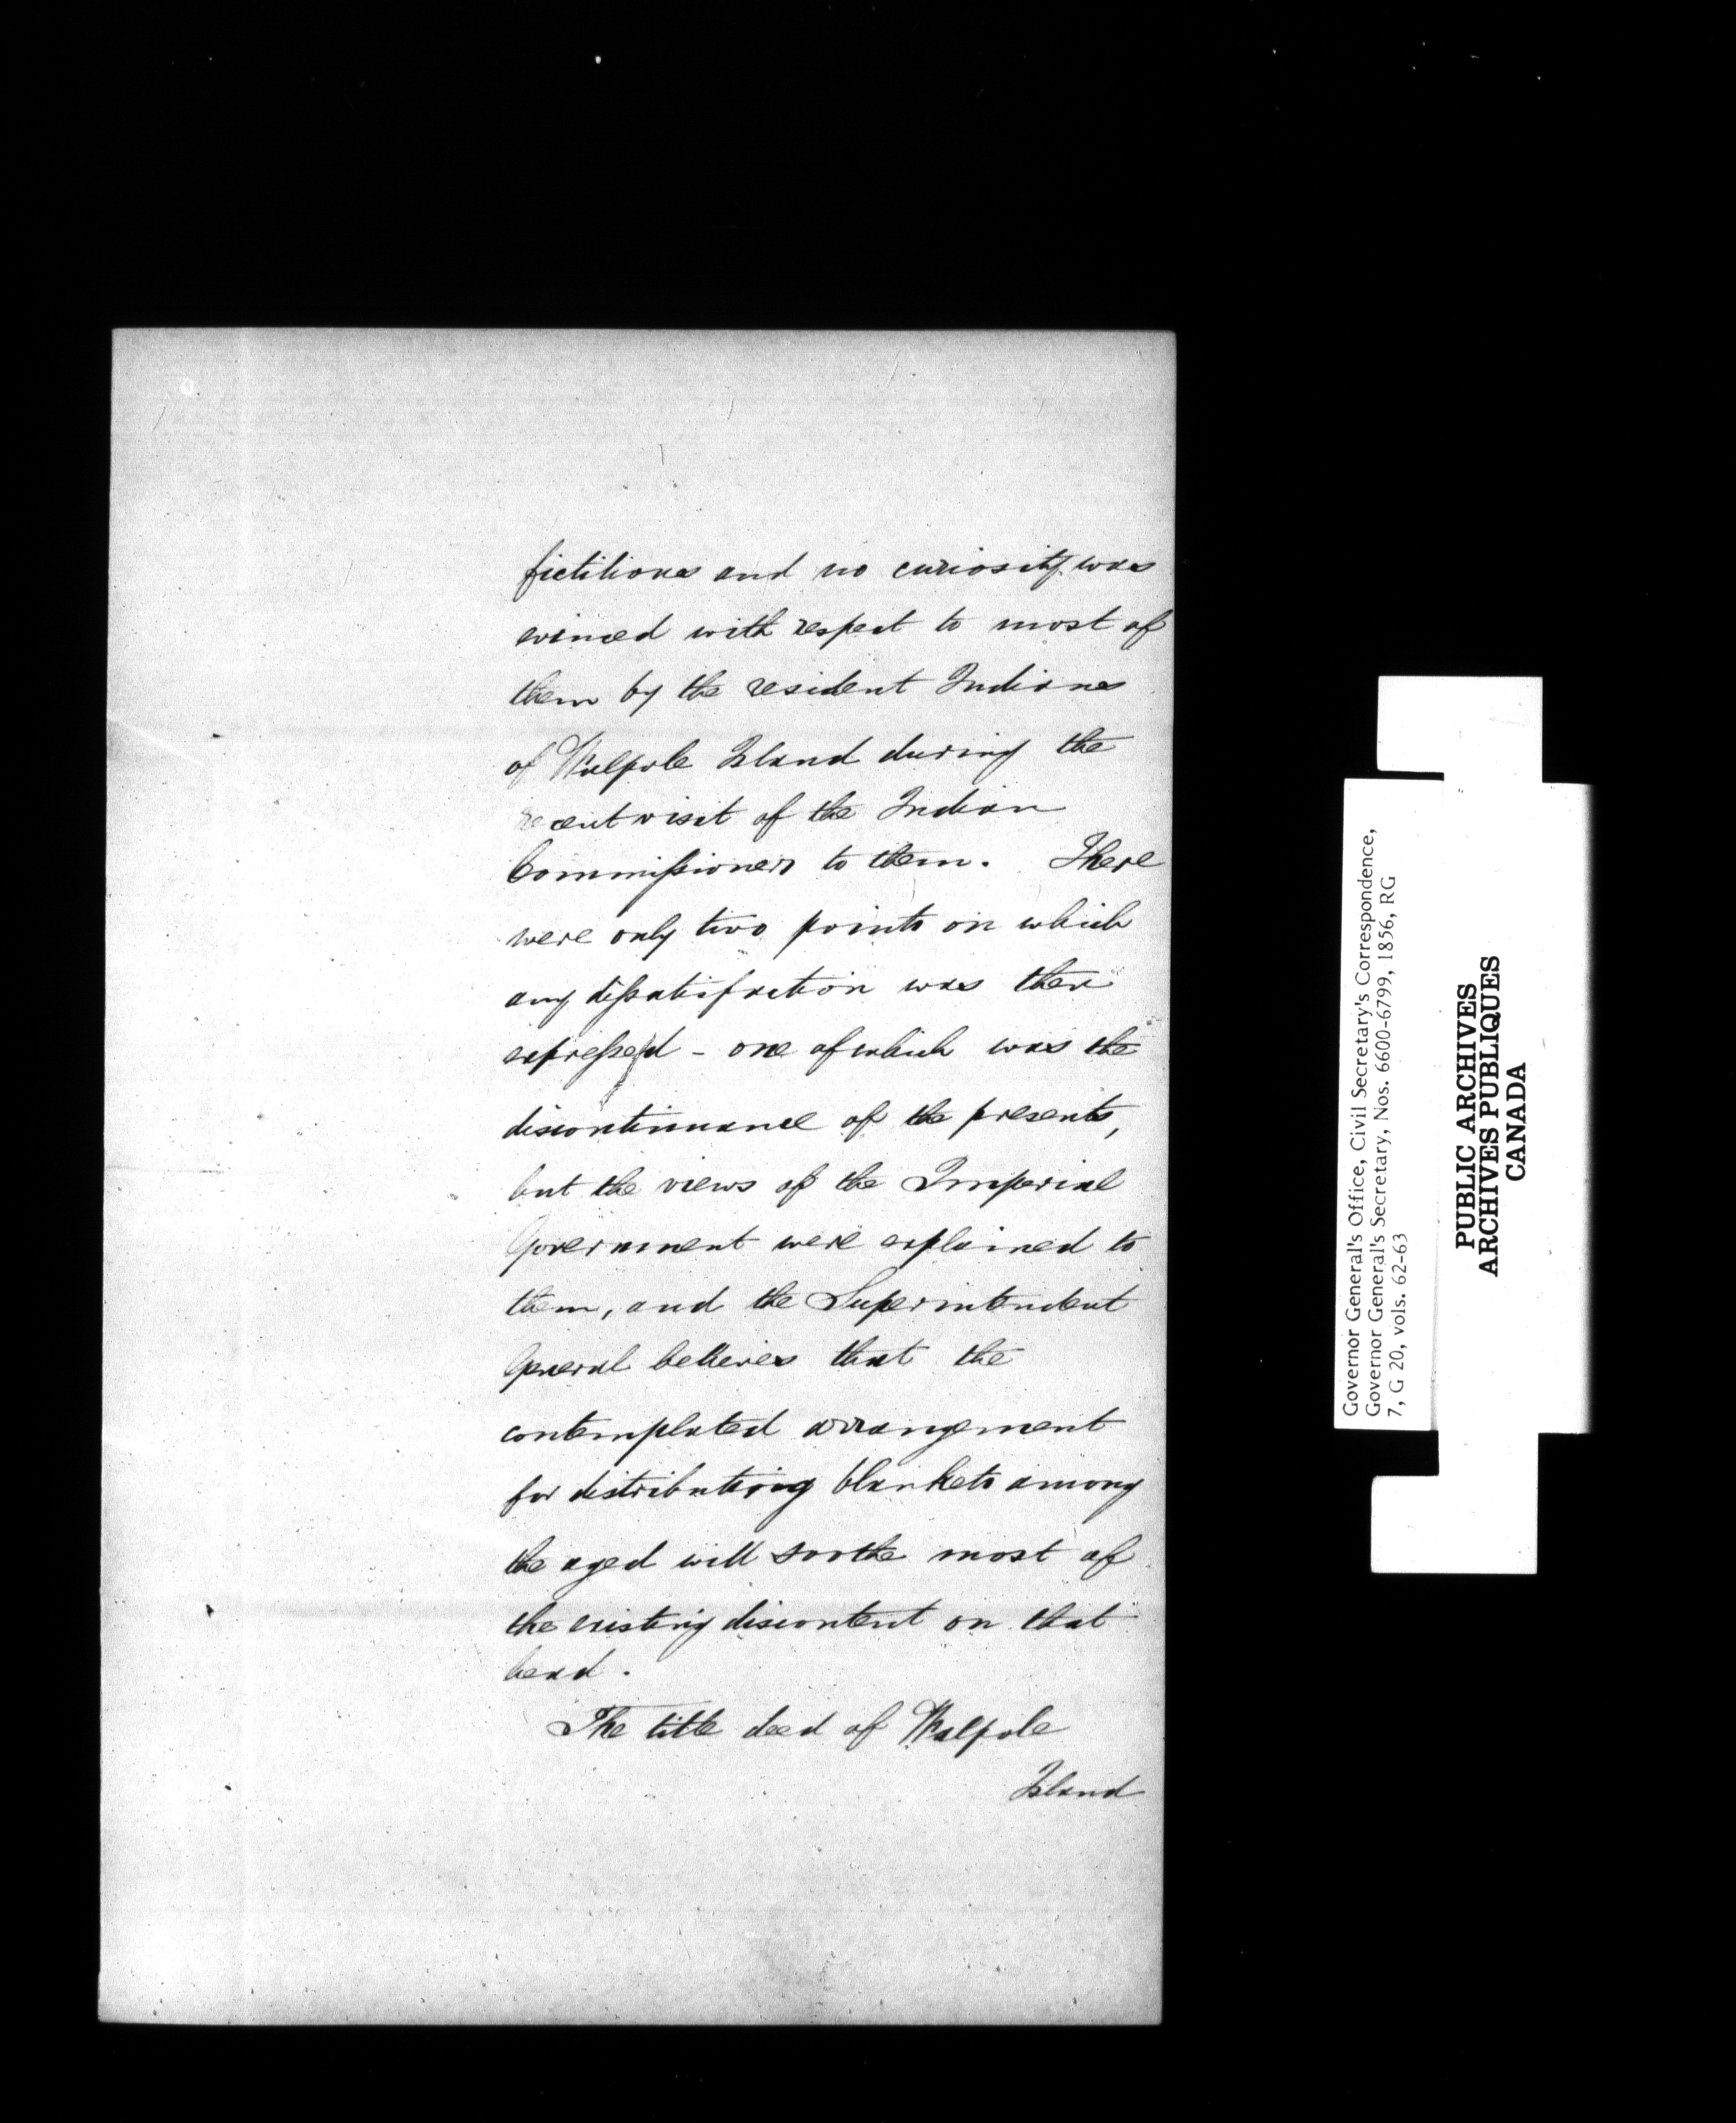 fictitious and no curiosity was
evinced with respect to most of
them by the resident Indians
of Walpole Island during the
recent visit of the Indian
Commissioners to them. There
were only two points on which
any dissatisfaction was then
expressed - one of which was the
discontinuance of the presents,
but the views of the Imperial
Government were explained to
them, and the Superintendent
General believes that the
contemplated arrangement
for distributing blankets among
the aged will soothe most of
the existing discontent on that
head.
The title deed of Walpole
Island
Governor General's Office, Civil Secretary's Correspondence,
Governor General's Secretary, Nos. 6600-6799, 1856, RG
7, G 20, vols. 62-63
PUBLIC ARCHIVES
ARCHIVES PUBLIQUES
CANADA